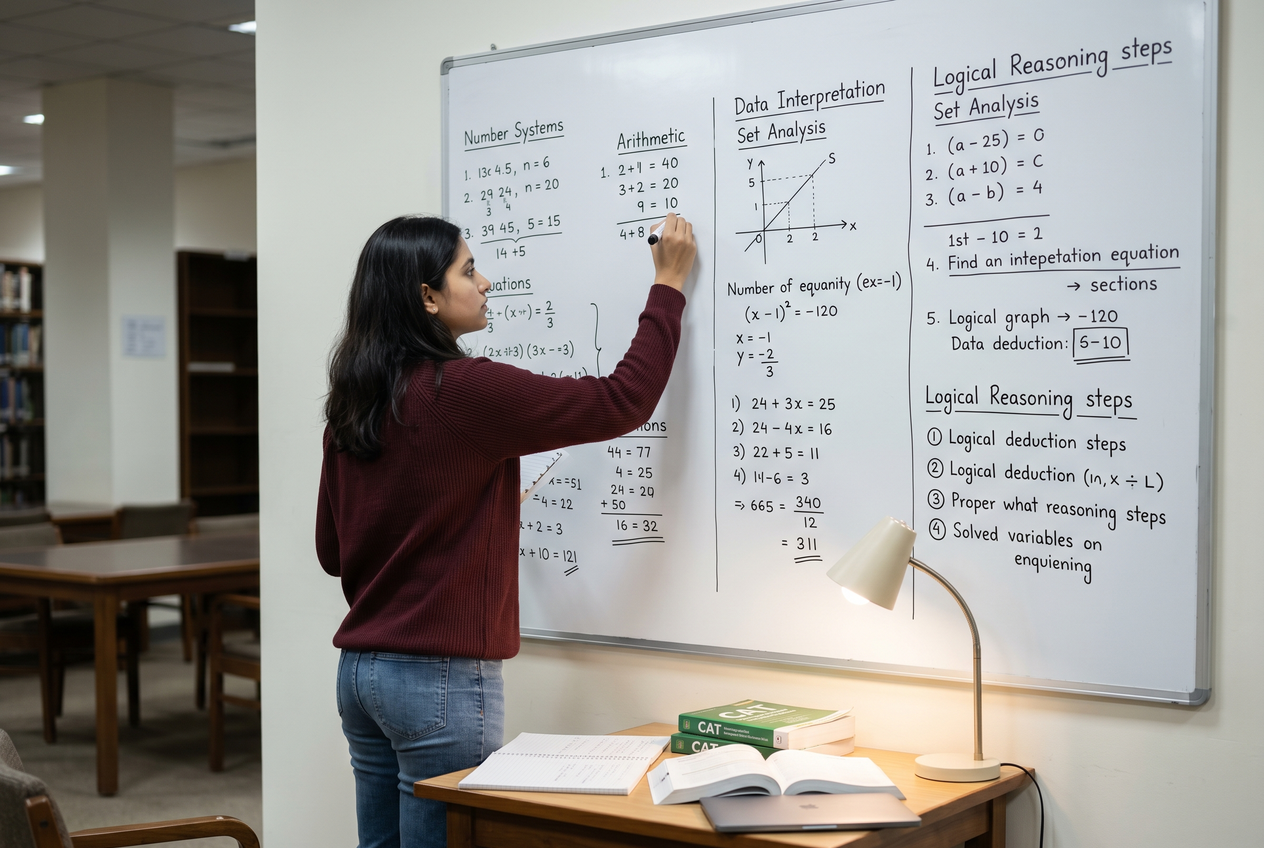 Number Systems
1. 13c 4.5, n = 6
2. 29 24, n = 20
3 4
3. 39 45, 5 = 15
14 + 5
uations
+ (x
) = 2/3
(2x
3) (3x - = 3)
x = = 51
- 4 = 22
x + 2 = 3
x + 10 = 121
Arithmetic
1. 2 + 1 = 40
3 + 2 = 20
9 = 10
4 + 8
ions
44 = 77
4 = 25
24 = 29
+ 50
16 = 32
Data Interpretation
Set Analysis
Y
S
5
1
0 2 2 x
Number of equanity (ex=-1)
(x - 1)² = -120
x = -1
y = -2/3
1) 24 + 3x = 25
2) 24 - 4x = 16
3) 22 + 5 = 11
4) 14 - 6 = 3
⇒ 665 = 340/12
= 311
Logical Reasoning steps
Set Analysis
1. (a - 25) = 0
2. (a + 10) = C
3. (a - b) = 4
1st - 10 = 2
4. Find an intepetation equation
→ sections
5. Logical graph → -120
Data deduction: 6-10
Logical Reasoning steps
① Logical deduction steps
② Logical deduction (in, x ÷ L)
③ Proper what reasoning steps
④ Solved variables on
enquiening
CAT
CAT
CAT